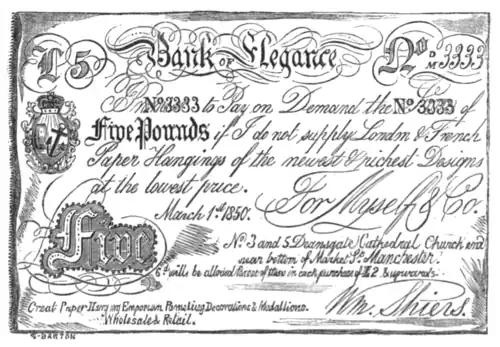 £5 Bank of Elegance No. D/M 3333
I Pm No3333 to Pay on Demand the No 3333 of
Five Pounds if I do not supply London & French
Paper Hangings of the newest & richest Designs
at the lowest price. For Myself & Co.
March 1st 1850.
Five
No 3 and 5 Deansgate Cathedral Church end
near bottom of Market St. Manchester.
6d. will be allowed for one of these in each purchase of £2 & upwards.
Great Paper Hanging Emporium Decorations & Medallions.
Wholesale & Retail. Wm. Shiers.
G. BARTON